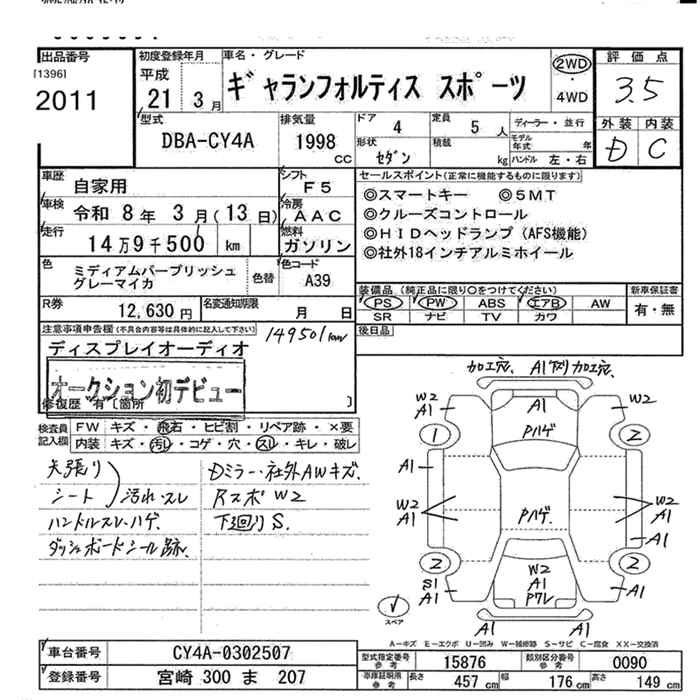 出品番号
[1396]
2011
初度登録年月
平成
21 3月
車名・グレード
ギャランフォルティス スポーツ
2WD
4WD
評価点
3.5
外装 内装
D C
型式
DBA-CY4A
排気量
1998
CC
ドア 4
形状 セダン
定員 5 人
積載 kg
ディーラー・並行
モデル年式 年
ハンドル 左・右
車歴
自家用
シフト
F5
車検
令和 8年 3月(13日)
冷房
AAC
走行
14万9千500 km
燃料
ガソリン
色
ミディアムパープリッシュ
グレーマイカ
色替
色コード
A39
R券
12,630円
名変通知期限
月 日
セールスポイント(正常に機能するものに限ります)
◎スマートキー ◎5MT
◎クルーズコントロール
◎HIDヘッドランプ(AFS機能)
◎社外18インチアルミホイール
装備品(純正品に限り○をつけてください)
PS PW ABS エアB AW
SR ナビ TV カワ
新車保証書
有・無
後日品
注意事項申告欄(不具合内容等は具体的に記入して下さい)
149501km
ディスプレイオーディオ
オークション初デビュー
修復歴 有〔箇所 〕
検査員記入欄
FW キズ・飛石・ヒビ割・リペア跡・×要
内装 キズ・汚れ・コゲ・穴・スレ・キレ・破レ
天張り
シート
汚れ・スレ
ハンドルスレ・ハゲ.
ダッシュボードシール跡
Dミラー・社外AWキズ.
Rスポ W2
下廻りS.
加工穴. A1 加工穴.
W2
A1
A1
Pハゲ
W2
1
2
A1
A1
W2
A1
Pハゲ.
W2
A1
A1
2
2
W2
A1
Pワレ
S1
A1
A1
A1
A1
スペア
A=キズ E=エクボ U=凹み W=補修跡 S=サビ C=腐食 XX=交換済
車台番号
CY4A-0302507
登録番号
宮崎 300 ま 207
型式指定番号
参考
15876
類別区分番号
参考
0090
車庫証明用
参考
長さ 457 cm
幅 176 cm
高さ 149 cm